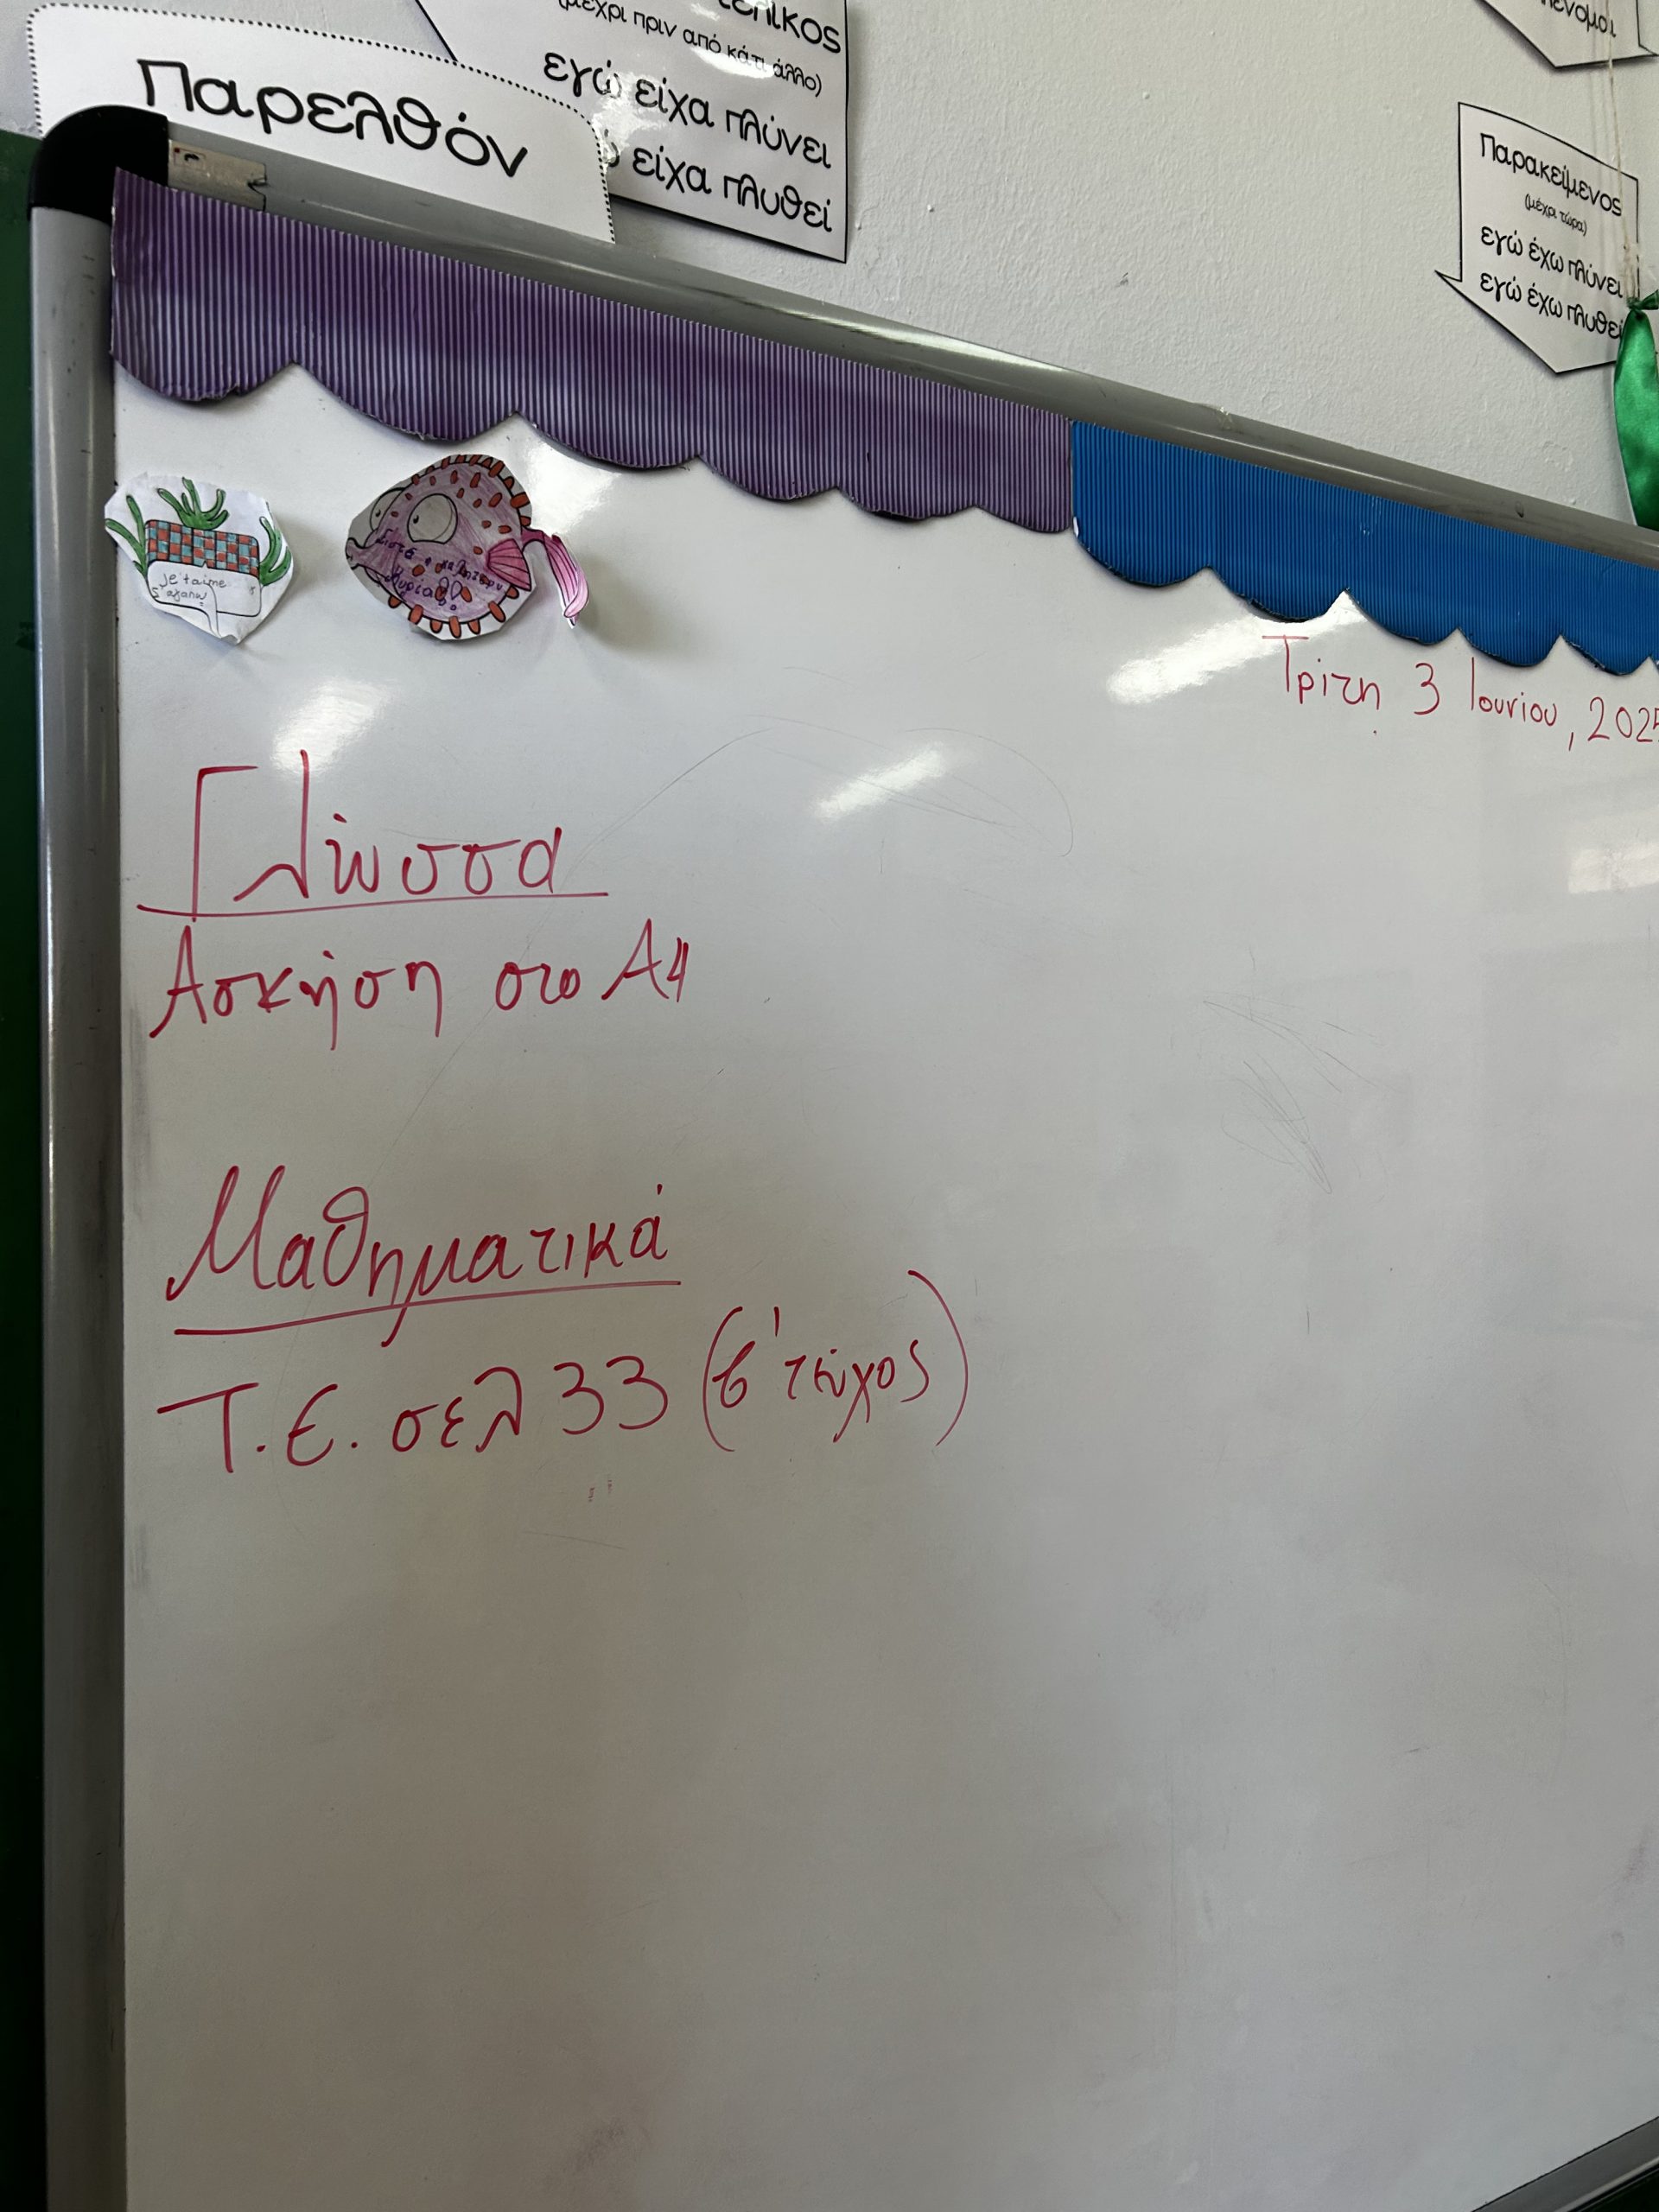 Παρελθόν
(μέχρι πριν από κάτι άλλο)
εγώ είχα πλύνει
είχα πλυθεί
Παρακείμενος
(μέχρι τώρα)
εγώ έχω πλύνει
εγώ έχω πλυθεί
je t'aime
σ'αγαπώ
Τρίτη 3 Ιουνίου, 2025
Γλώσσα
Άσκηση στο Α4
Μαθηματικά
Τ.Ε. σελ 33 (β' τεύχος)